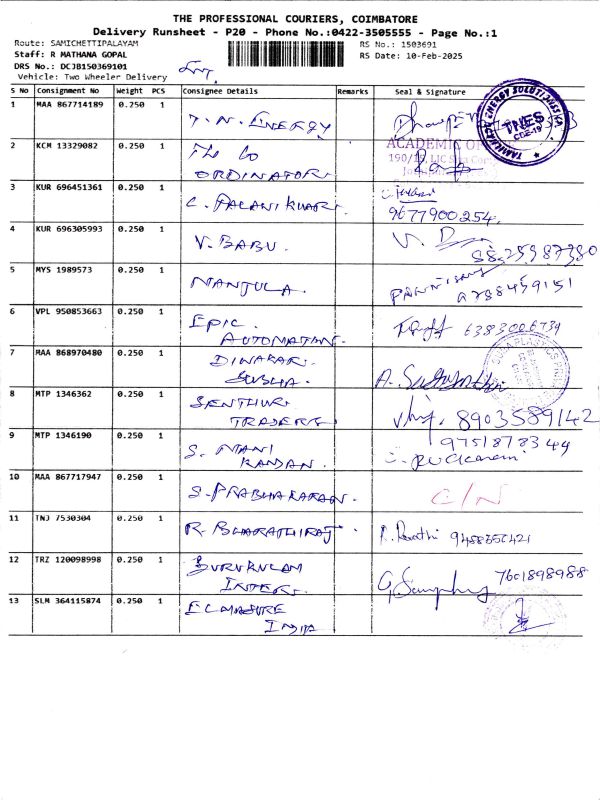 THE PROFESSIONAL COURIERS, COIMBATORE
Delivery Runsheet - P20 - Phone No.:0422-3505555 - Page No.:1
Route: SAMICHETTIPALAYAM RS No.: 1503691
Staff: R MATHANA GOPAL RS Date: 10-Feb-2025
DRS No.: DCJB150369101
Vehicle: Two Wheeler Delivery
S No Consignment No Weight PCS Consignee Details Remarks Seal & Signature
1 MAA 867714189 0.250 1 T.N. ENERGY
TAMILNADU ENERGY SOLUTIONS
TNES
CBE-19
2 KCM 13329082 0.250 1 The Co
ORDINATOR
ACADEMIC
190/
3 KUR 696451361 0.250 1 C. PALANIKUAR.
9677900254.
4 KUR 696305993 0.250 1 V. BABU.
5 MYS 1989573 0.250 1 MANJULA.
9788459151
6 VPL 950853663 0.250 1 EPIC.
AUTOMATION.
6383006739
7 MAA 868970480 0.250 1 DINAKAR.
SUBHA.
8 MTP 1346362 0.250 1 SENTHUR
TRADERS
8903589142
9 MTP 1346190 0.250 1 S. MANI
KANDAN.
9751878344
10 MAA 867717947 0.250 1 S. PRABHAKARAN.
C/N
11 TNJ 7530304 0.250 1 R. BHARATHIRAJ.
12 TRZ 120098998 0.250 1 GURUKULAM
INTER.
7601898988
13 SLM 364115874 0.250 1 ELMASURE
INDIA